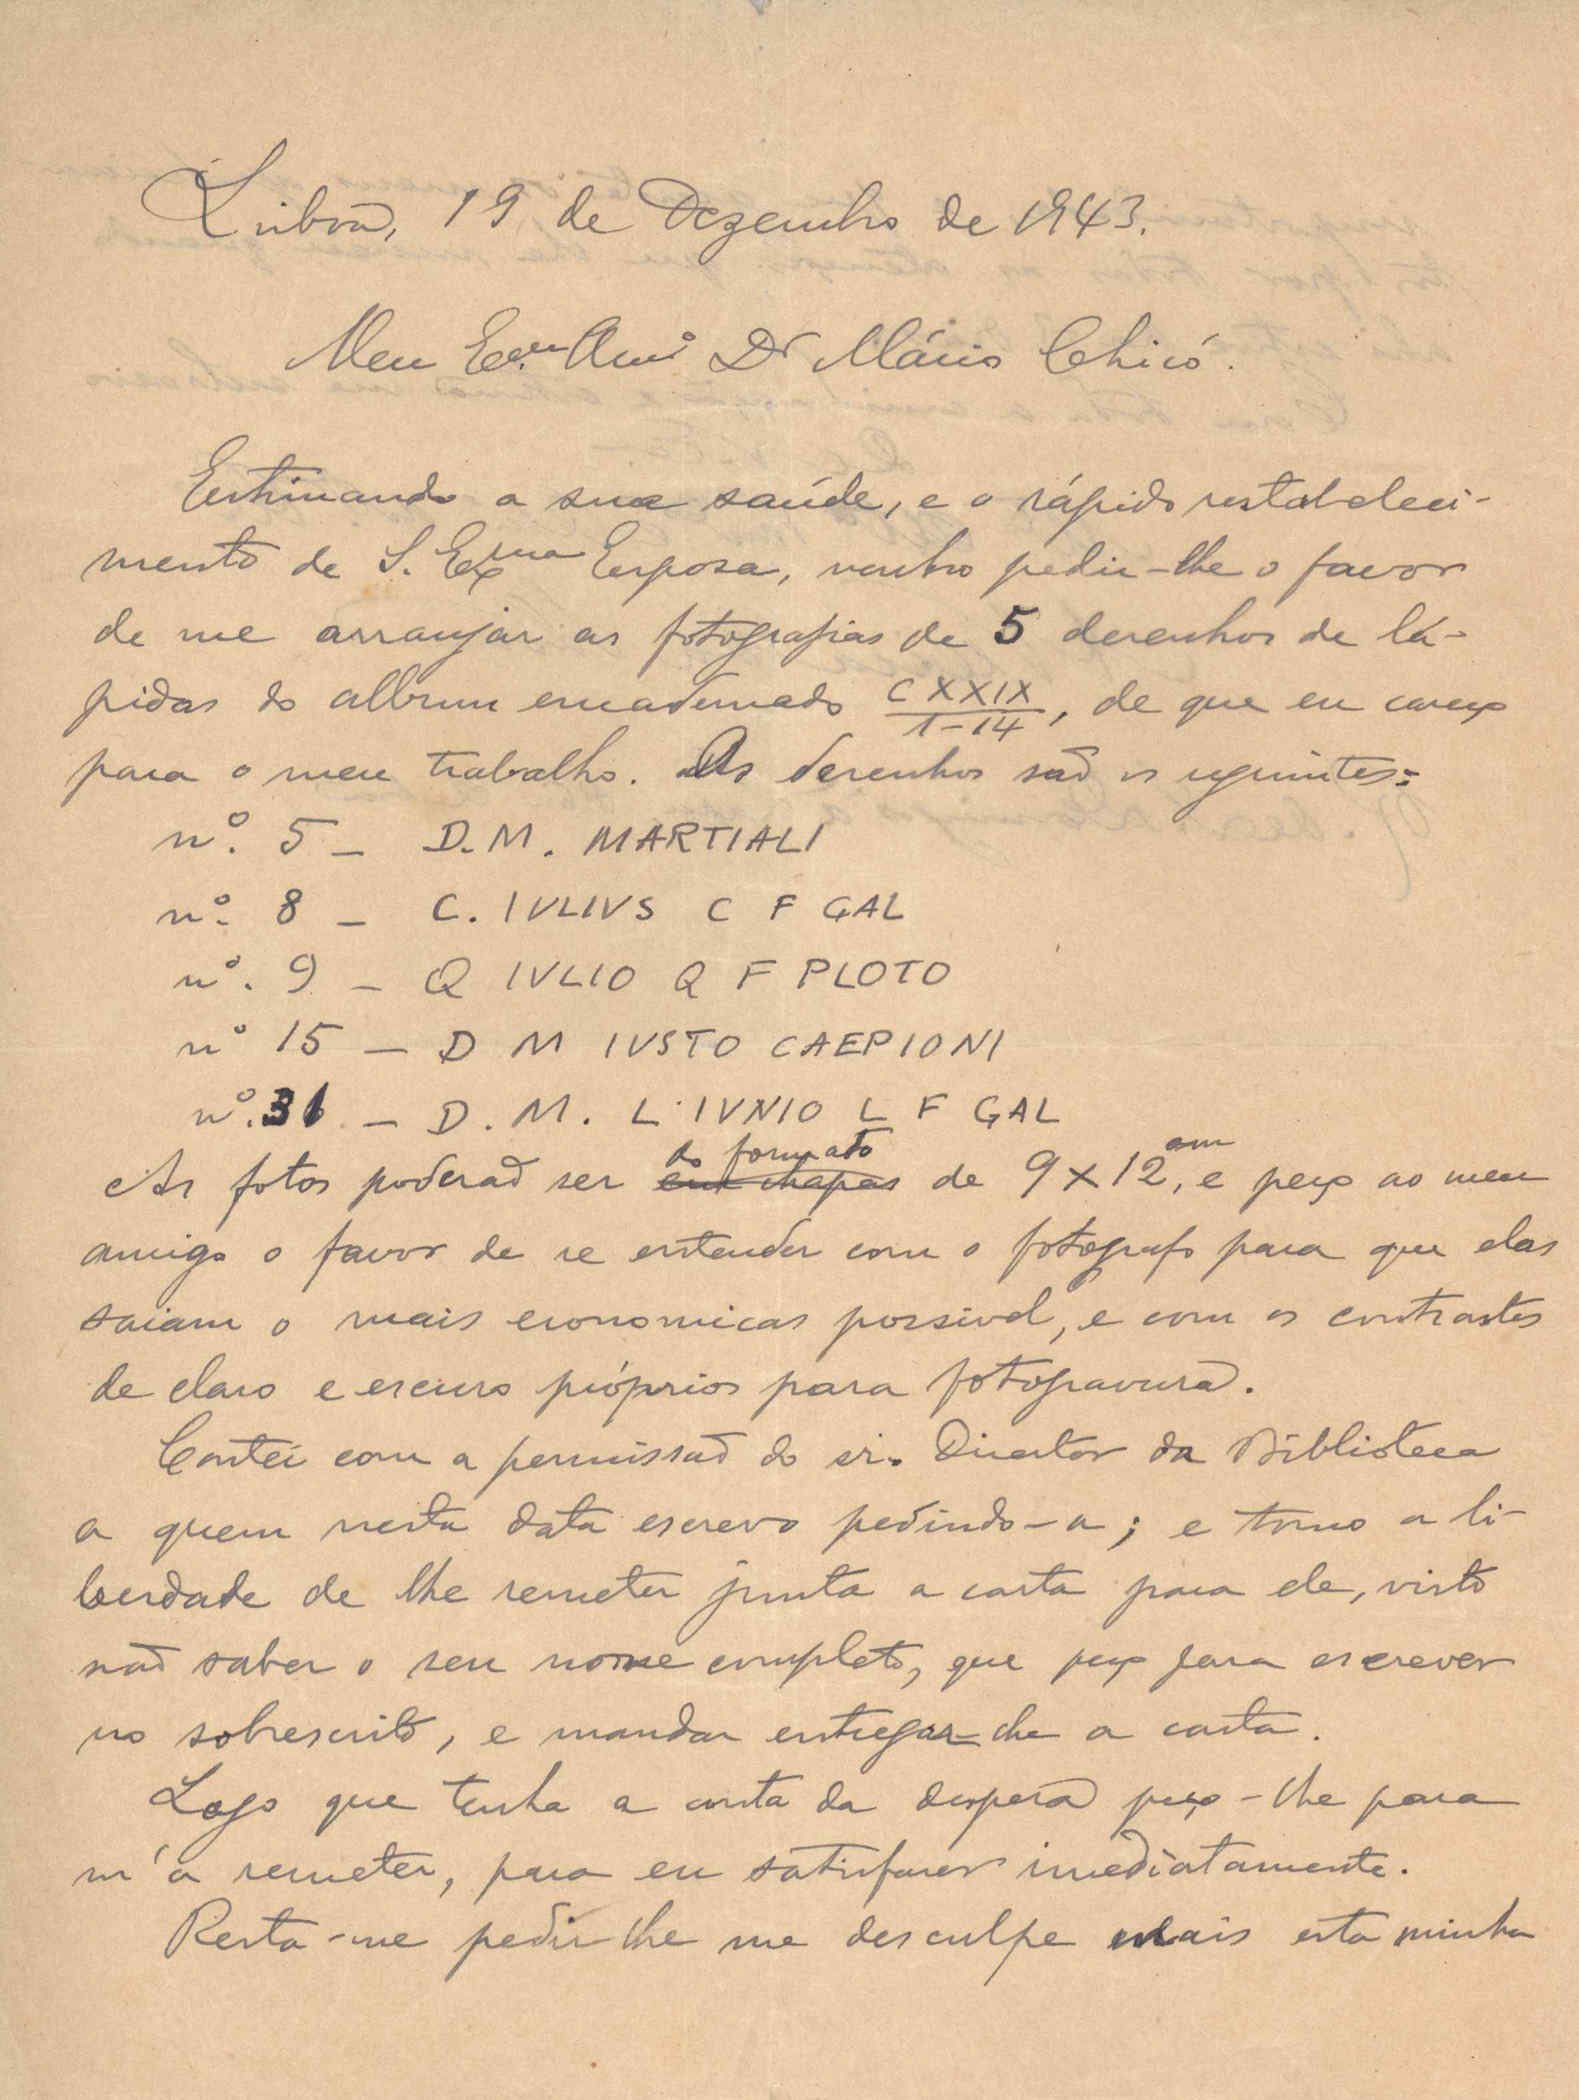 Lisboa, 19 de Dezembro de 1943.
Meu Exmo. Amº Dr Mário Chicó.
Estimando a sua saúde, e o rápido restabeleci-
mento de S. Exma Esposa, venho pedir-lhe o favor
de me arranjar as fotografias de 5 desenhos de lá-
pidas do album encadernado CXXIX/1-14, de que eu careço
para o meu trabalho. Os desenhos são os seguintes:
nº. 5 - D.M. MARTIALI
nº. 8 - C. IVLIVS C F GAL
nº. 9 - Q IVLIO Q F PLOTO
nº 15 - D M IVSTO CAEPIONI
nº. 31 - D. M. L. IVNIO L F GAL
do formato
As fotos poderão ser em chapas de 9 x 12 cm, e peço ao meu
amigo o favor de se entender com o fotografo para que elas
saiam o mais economicas possivel, e com os contrastes
de claro e escuro próprios para fotogravura.
Contei com a permissão do sr. Director da Biblioteca
a quem nesta data escrevo pedindo-a; e tomo a li-
berdade de lhe remeter junta a carta para ele, visto
não saber o seu nome completo, que peço para escrever
no sobrescrito, e mandar entregar-lhe a carta.
Logo que tenha a conta da despesa peço-lhe para
m'a remeter, para eu satisfazer imediatamente.
Resta-me pedir-lhe me desculpe mais esta minha